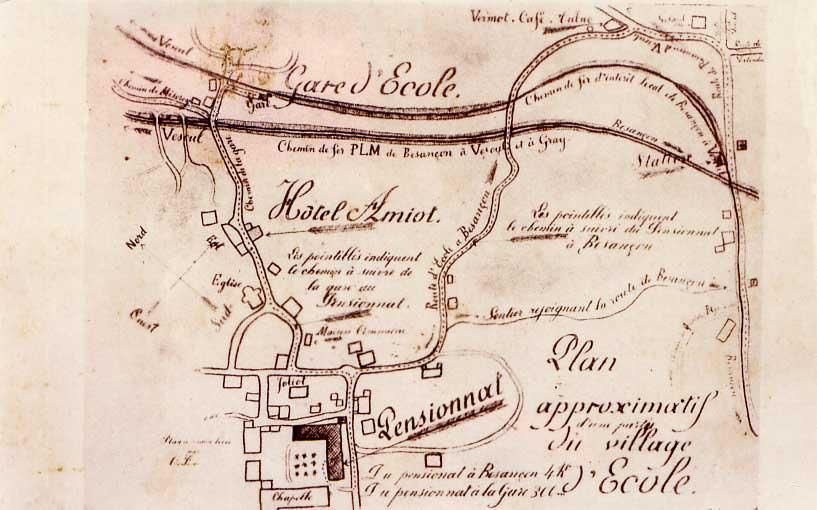 Vermot. Café.
Vesoul
Gare d'Ecole.
Gare
Chemin de fer d'intérêt local de Besançon à
Vesoul
Chemin de fer PLM de Besançon à Vesoul et à Gray.
Besançon
Station
Chemin de la gare
Hôtel Amiot.
Les pointillés indiquent
le chemin à suivre du Pensionnat
à Besançon
Nord
Est
Les pointillés indiquent
le chemin à suivre de
la gare au
Pensionnat.
Route d'Ecole à Besançon
Eglise
Sud
Ouest
Sentier rejoignant la route de Besançon
Maison Commune
Joliot
Pensionnat
Plan
approximatif
d'une partie
du village
d'Ecole.
Du pensionat à Besançon 4 K
Du pensionnat à la Gare 300 m
Chapelle